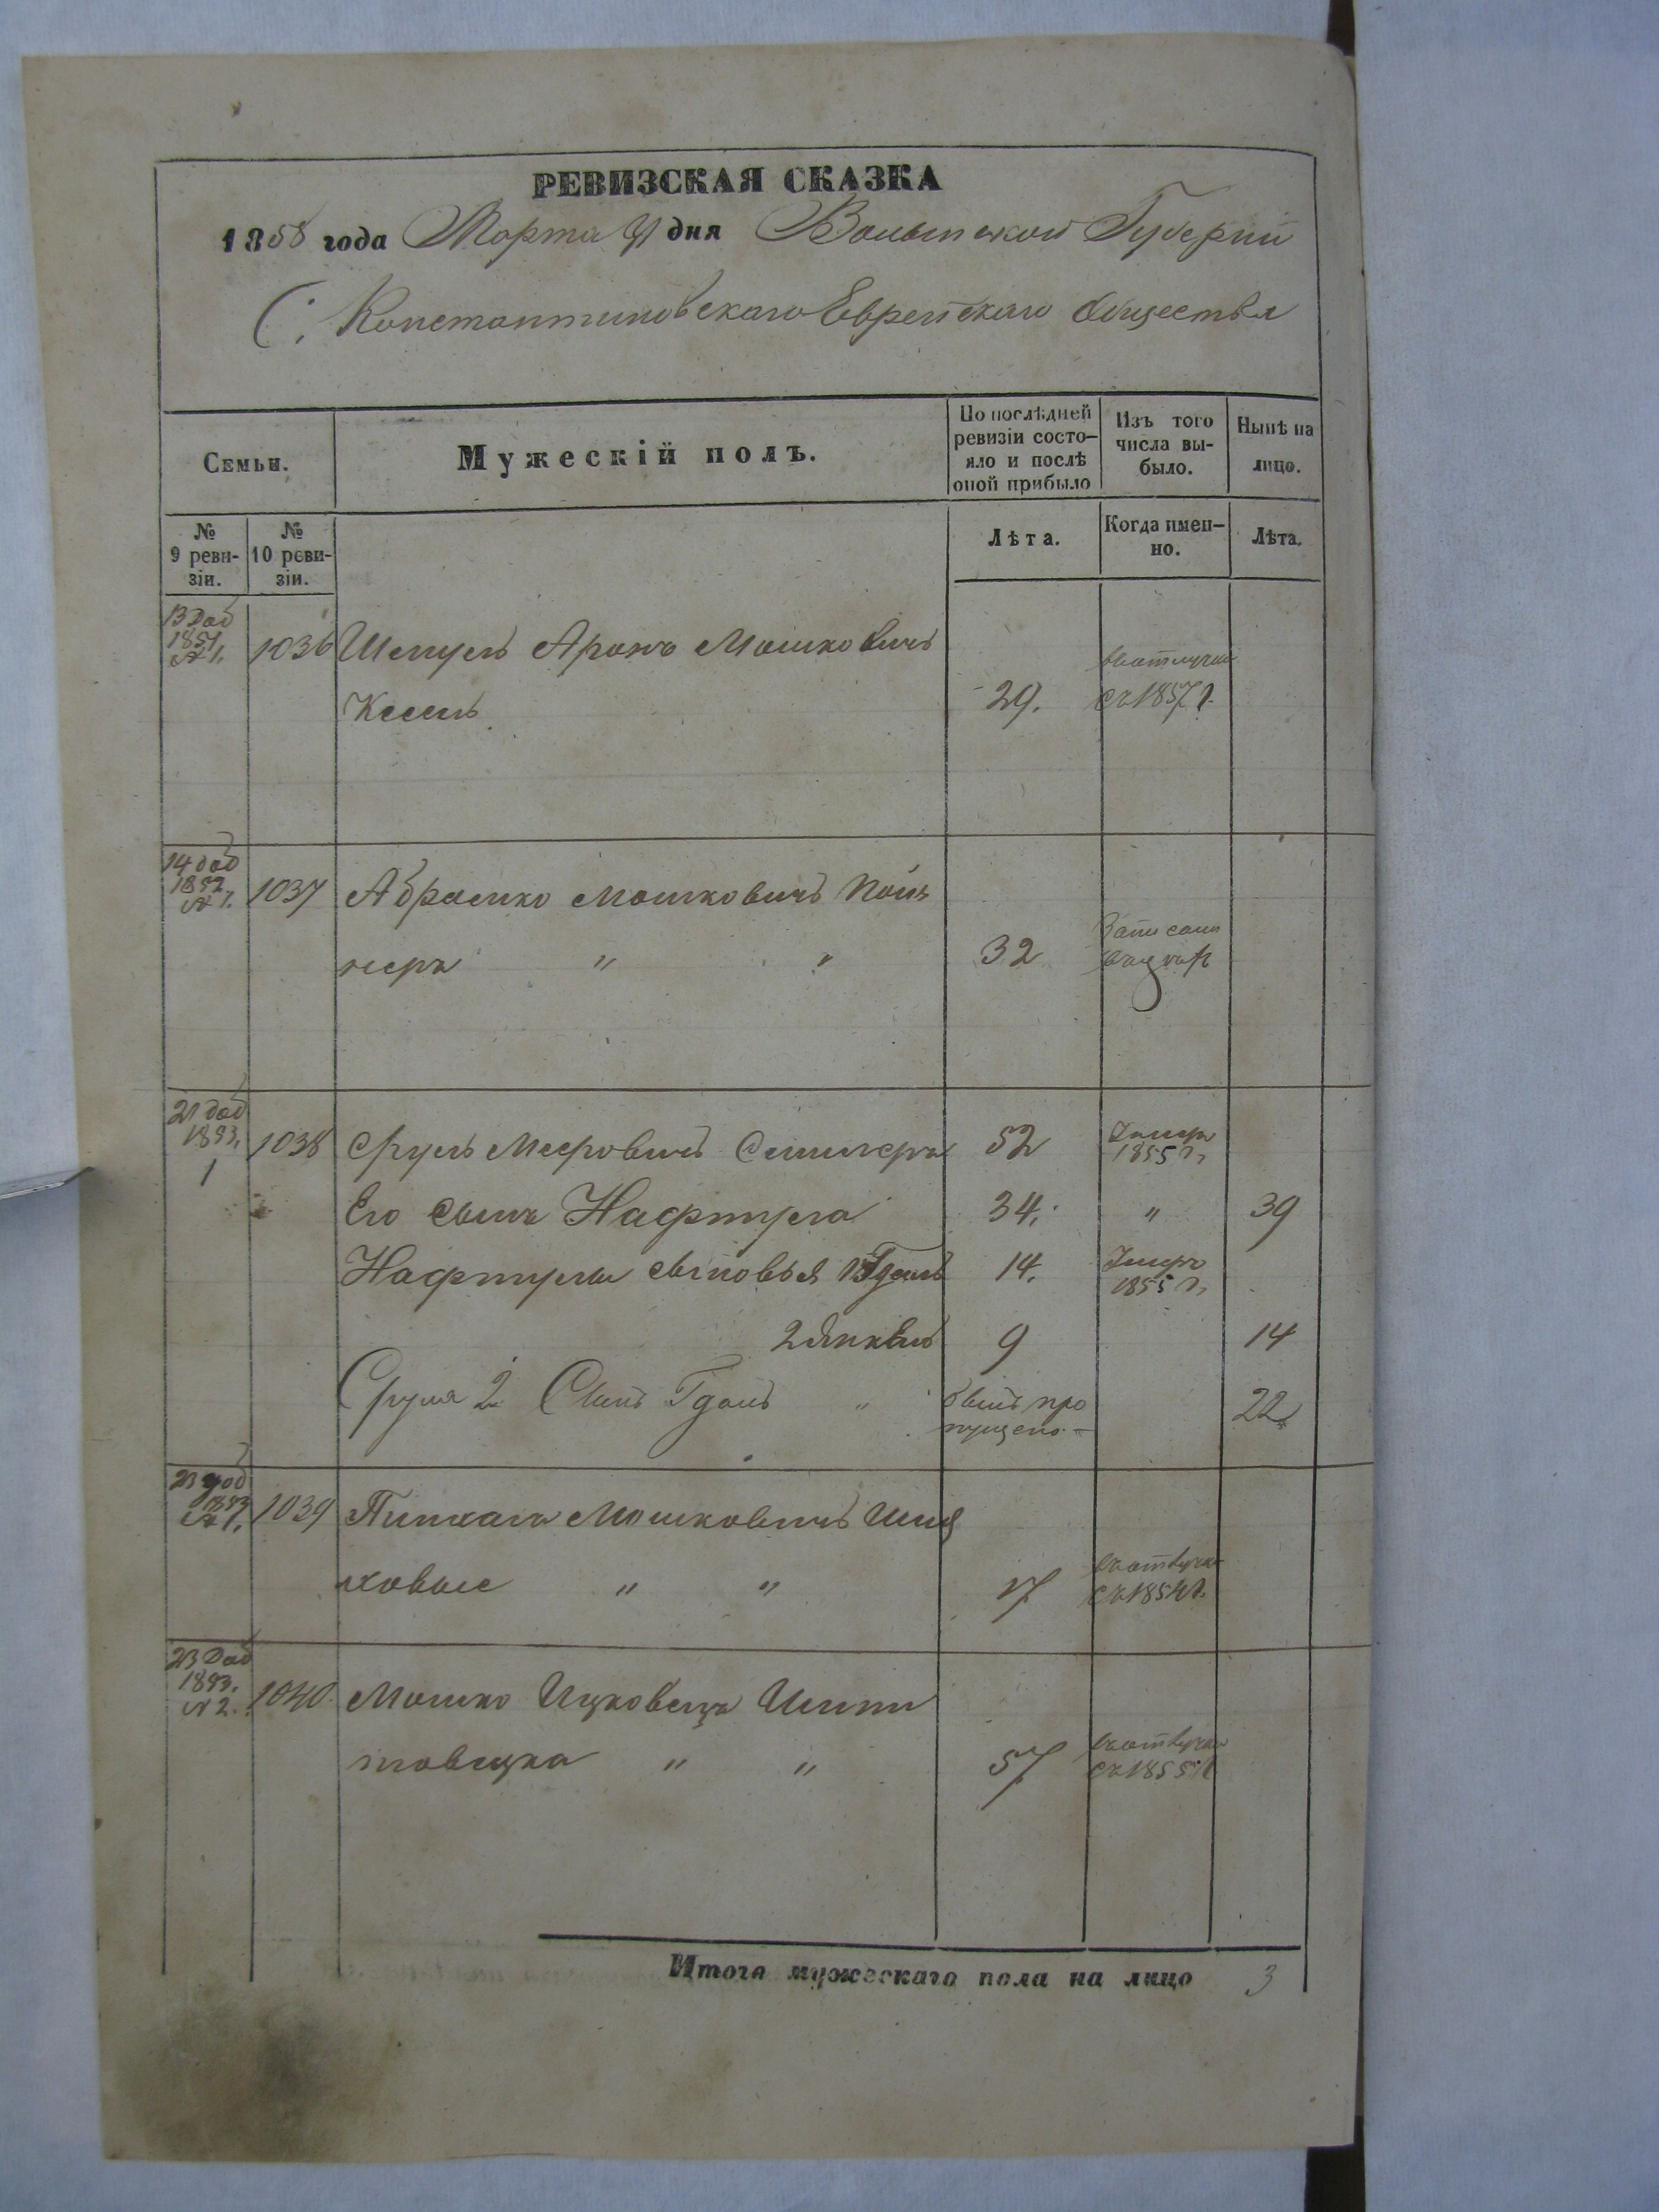 РЕВИЗСКАЯ СКАЗКА
1858 года Марта дня Волынской Губерніи
С. Константиновскаго Еврейскаго Общества
Семьи.
Мужескій полъ.
По послѣдней ревизіи состо-яло и послѣ оной прибыло
Изъ того числа вы-было.
Нынѣ на лицо.
№ 9 реви-зіи.
№ 10 реви-зіи.
Лѣта.
Когда имен-но.
Лѣта.
13 Доб 1851 №1. 1036 Шмуль Аронъ Мошковичъ
29. въ отлучкѣ съ 1857 г.
14 доб 1852. №1. 1037 Абрамко Мошковичъ
" " 32 Записанъ
21 доб 1853. 1 1038 Сруль Меровичъ 52 Умеръ 1855 г.
Его сынъ Нафтула 34. " 39
Нафтулы сыновья 1 Гданъ 14. Умеръ 1855 г.
2 Янкель 9 14
Сруля 2 Сынъ Гданъ " былъ пропущенъ 22
23 доб 1853 №1. 1039 Пинхасъ Мошковичъ
" " 17 въ отлучкѣ съ 1854 г.
23 Доб 1853. №2. 1040. Мошко Ицковичъ
" " 57 въ отлучкѣ съ 1855 г.
Итого мужескаго пола на лицо 3